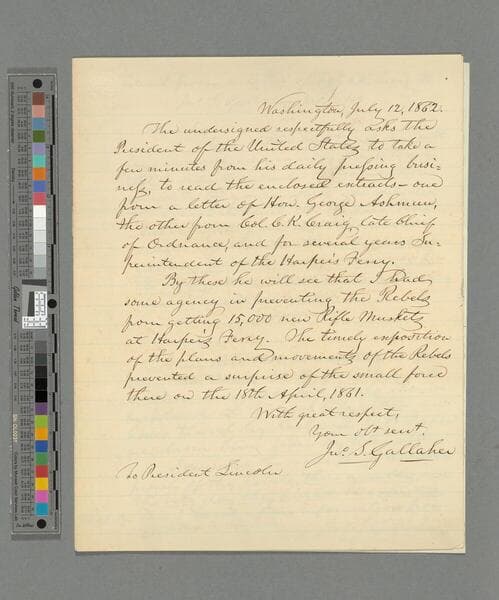 Washington, July 12, 1862.
The undersigned respectfully asks the
President of the United States to take a
few minutes from his daily pressing busi-
ness, to read the enclosed extracts - one
from a letter of Hon. George Ashmun,
the other from Col. C. K. Craig, late Chief
of Ordnance, and for several years Su-
perintendent of the Harper's Ferry.
By these he will see that I had
some agency in preventing the Rebels
from getting 15,000 new Rifle Muskets
at Harper's Ferry. The timely exposition
of the plans and movements of the Rebels
prevented a surprise of the small force
there on the 18th April, 1861.
With great respect,
Your obt servt.
Jno. S. Gallaher
To President Lincoln